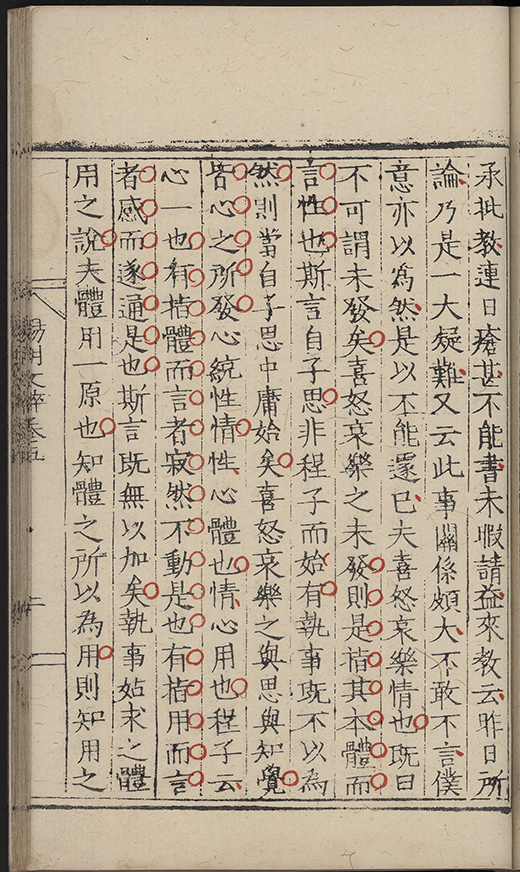 承批教連日瘡甚不能書未暇請益來教云昨日所
論乃是一大疑難又云此事關係頗大不敢不言僕
意亦以為然是以不能遽已夫喜怒哀樂情也既曰
不可謂未發矣喜怒哀樂之未發則是指其本體而
言性也斯言自子思非程子而始有執事既不以為
然則當自子思中庸始矣喜怒哀樂之與思與知覺
皆心之所發心統性情性心體也情心用也程子云
心一也有指體而言者寂然不動是也有指用而言
者感而遂通是也斯言既無以加矣執事姑求之體
用之說夫體用一原也知體之所以為用則知用之
陽明文粹卷五